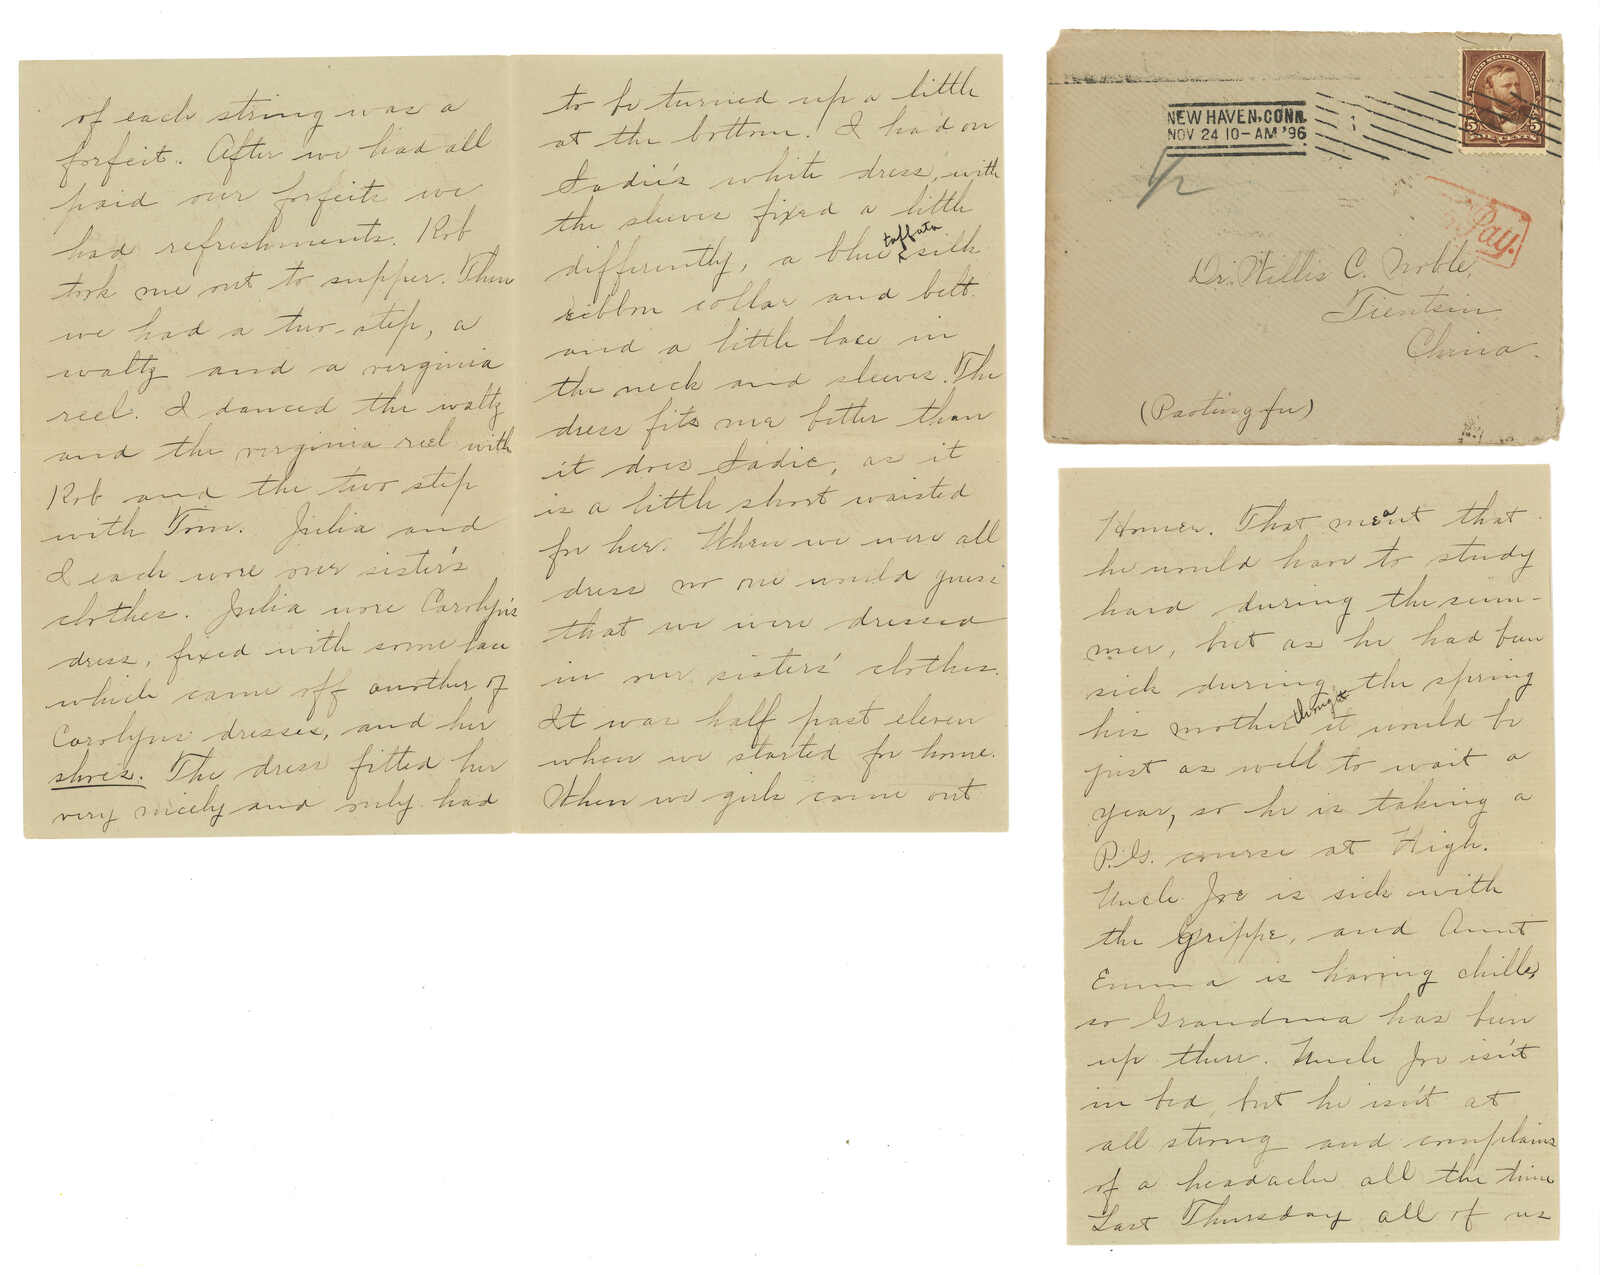 of each string was a
forfeit. After we had all
paid our forfeits we
had refreshments. Rob
took me out to supper. Then
we had a two-step, a
waltz and a virginia
reel. I danced the waltz
and the virginia reel with
Rob and the two step
with Tom. Julia and
I each wore our sister's
clothes. Julia wore Carolyn's
dress, fixed with some lace
which came off another of
Carolyns dresses, and her
shoes. The dress fitted her
very nicely and only had
to be turned up a little
at the bottom. I had on
Sadie's white dress, with
the sleeves fixed a little
differently, a blue taffata silk
ribbon collar and belt
and a little lace in
the neck and sleeves. The
dress fits me better than
it does Sadie, as it
is a little short waisted
for her. When we were all
dress no one would guess
that we were dressed
in our sisters' clothes.
It was half past eleven
when we started for home.
When we girls came out
NEW HAVEN, CONN.
NOV 24 10-AM '96
UNITED STATES POSTAGE
5 5
Pay.
Dr. Willis C. Noble,
Tientsin
China.
(Parting fu)
Homer. That meant that
he would have to study
hard during the sum-
mer, but as he had been
sick during the spring
his mother thought it would be
just as well to wait a
year, so he is taking a
P.G. course at High.
Uncle Joe is sick with
the grippe, and Aunt
Emma is having chills,
so Grandma has been
up there. Uncle Joe isn't
in bed, but he isn't at
all strong and complains
of a headache all the time
Last Thursday all of us